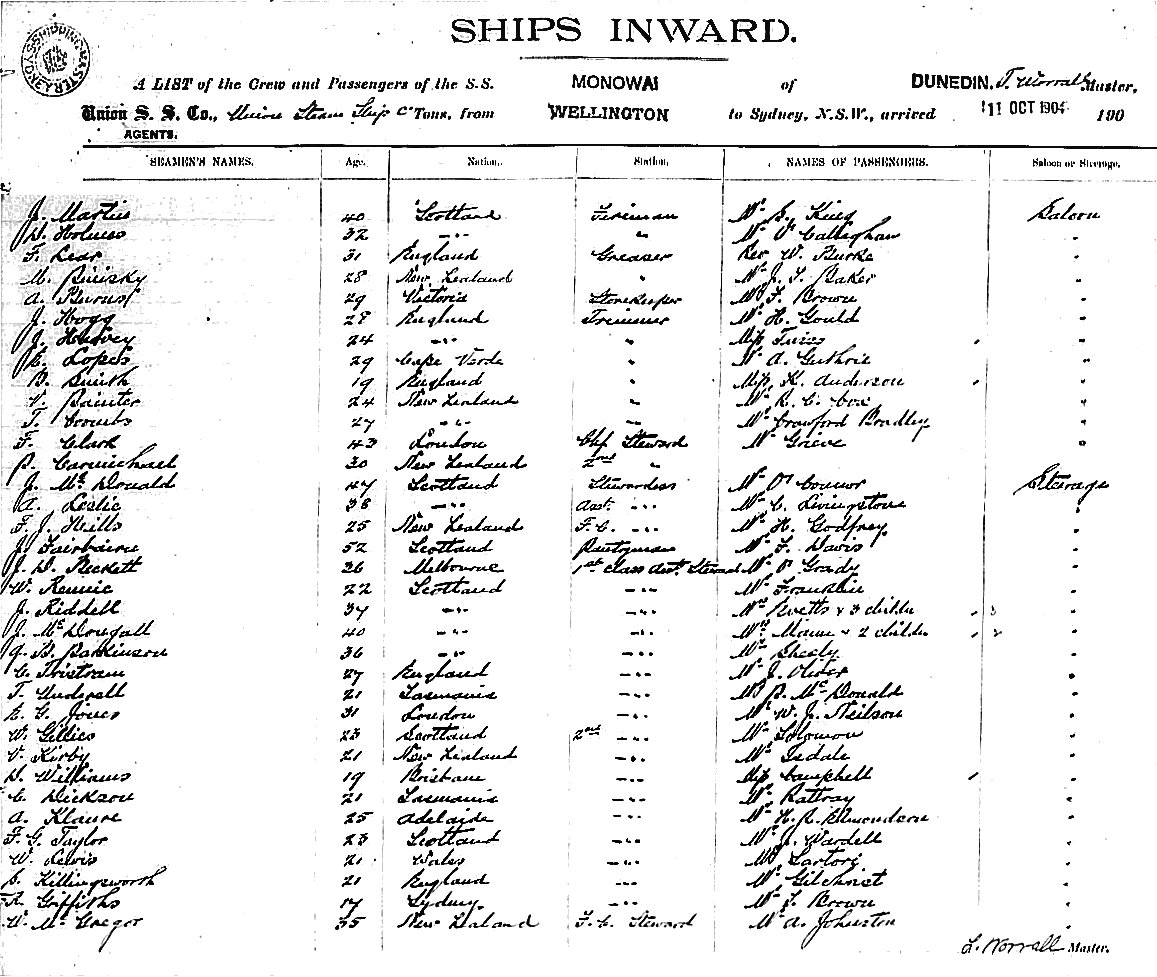 SHIPS INWARD.
A LIST of the Crew and Passengers of the S.S. MONOWAI of DUNEDIN, T Worrall Master,
Union S. S. Co., Union Steam Ship Co Tons, from WELLINGTON to Sydney, N.S.W., arrived 11 OCT 190 190
AGENTS.
SEAMEN'S NAMES. Age. Nation. Station. NAMES OF PASSENGERS. Saloon or Steerage.
J. Martin 40 Scotland Fireman Mr King Saloon
Holmes 32 -"- " Mr Callaghan "
F. Lear 31 England Greaser Rev W. Burke "
M. 28 New Zealand " Mr J. Baker "
A. Burns 29 Victoria Storekeeper Brown "
J. Hogg 28 England Trimmer Mr H. Gould "
J. Harvey 24 -"- " Miss "
Lopes 29 Cape Verde " Mr A. Guthrie "
B. Smith 19 England " Miss K. Anderson "
V. Painter 24 New Zealand " Mr R. C. Cox "
T. Coombs 27 -"- " Mr Crawford Bradley "
F. Clark 43 London Chf Steward Mr Grieve "
P. Carmichael 30 New Zealand 2nd "
J. McDonald 47 Scotland Stewardess Mr O'Connor Steerage
A. Leslie 38 -"- Asst. -"- Mr C. Livingstone "
F. J. Hills 25 New Zealand F.C. -"- Mr H. Godfrey "
J. Fairbairn 52 Scotland Pantryman Mr F. Davis "
J. D. Beckett 36 Melbourne 1st Class Asst. Steward Mr O'Grady "
W. Rennie 22 Scotland -"- Mr Franklin "
J. Riddell 37 -"- -"- Mrs & 3 childn 3 "
J. McDougall 40 -"- -"- Mrs & 2 childn 2 "
G. B. Parkinson 36 -"- -"- Mr Sheely "
C. Tristram 27 England -"- Mr J. "
T. Underell 21 Tasmania -"- McDonald "
E. G. Jones 31 London -"- Mr W. J. Neilson "
W. Gillies 23 Scotland 2nd -"- Mr Solomon "
V. Kirby 21 New Zealand -"- Mr Isdale "
D. Williams 19 Brisbane -"- Miss Campbell "
C. Dickson 21 Tasmania -"- Mr Rattray "
A. Klaure 25 Adelaide -"- Mr H. R. Edmondson "
F. G. Taylor 23 Scotland -"- Mr J. Wardell "
W. Lewis 21 Wales -"- Sartori "
S. Killingsworth 21 England -"- Mr Gilchrist "
R. Griffiths 17 Sydney -"- Mr Brown "
W. McGregor 35 New Zealand F. C. Steward Mr A. Johnston "
L. Worrall Master.